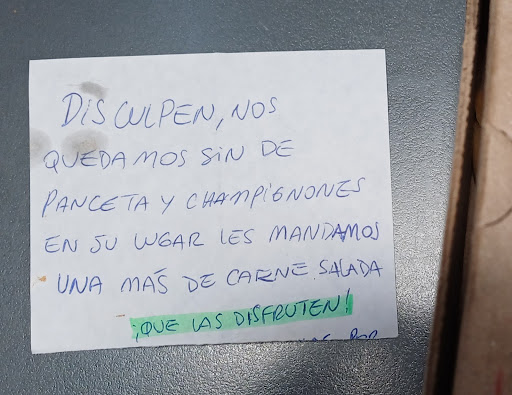 DISCULPEN, NOS
QUEDAMOS SIN DE
PANCETA Y CHAMPIGNONES
EN SU LUGAR LES MANDAMOS
UNA MÁS DE CARNE SALADA
¡QUE LAS DISFRUTEN!
POR